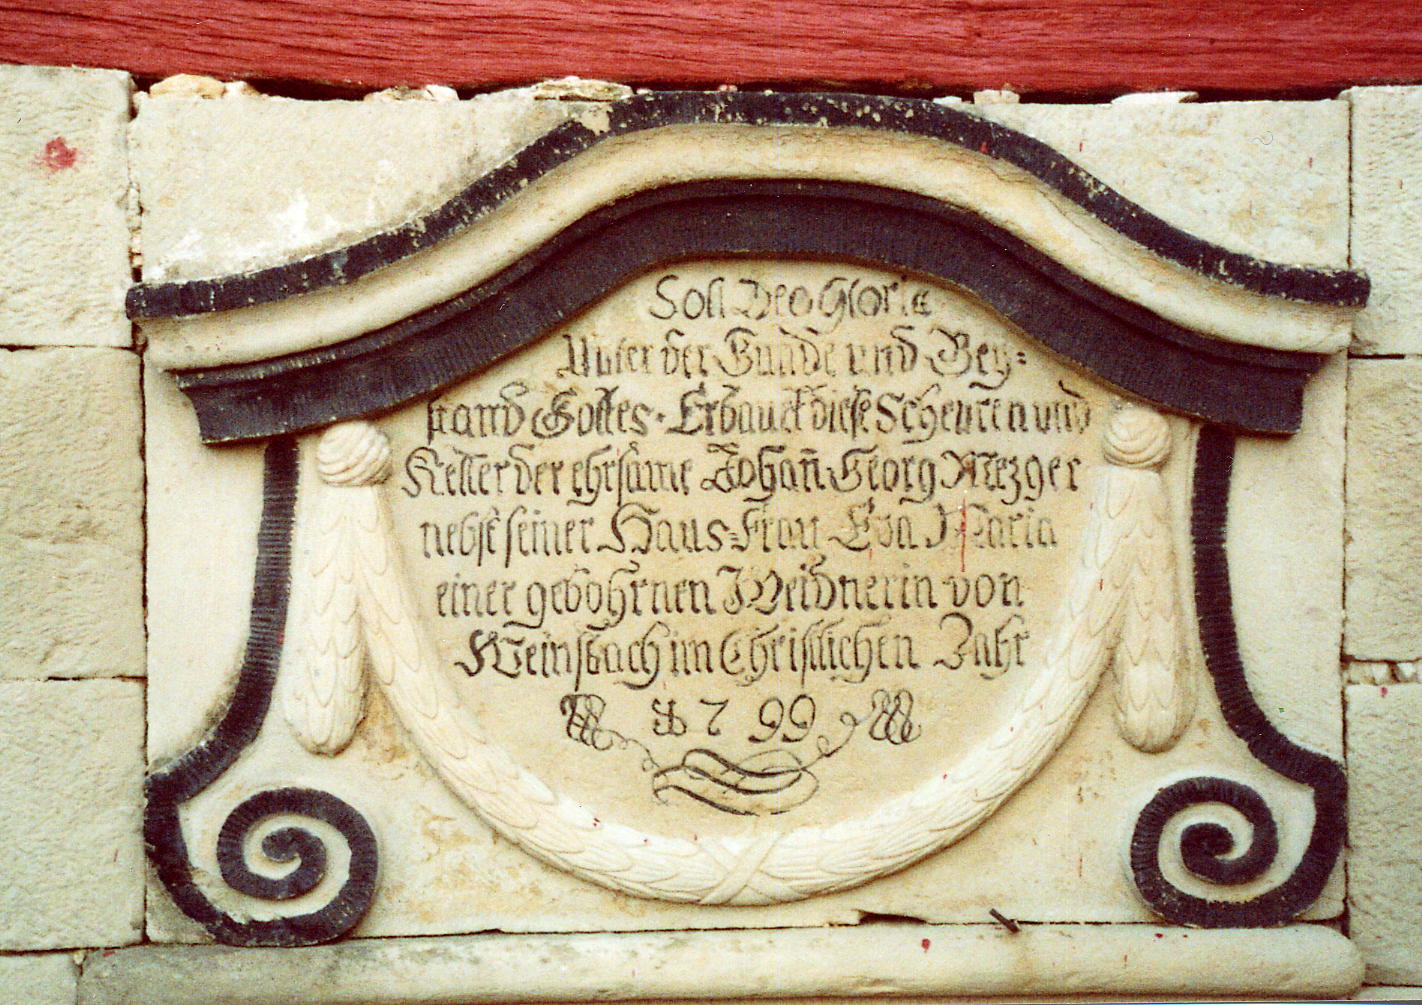 Soli Deo Gloria
Unter der Gunde und Bey=
stand Gottes. Erbauet diese Scheuren und
Keller der ehrsame Johan̄ Georg Mezger
nebst seiner Haus=Frau Eva Maria
einer gebohrnen Weidnerin von
Weinsbach im Christlichen Jahr
1799